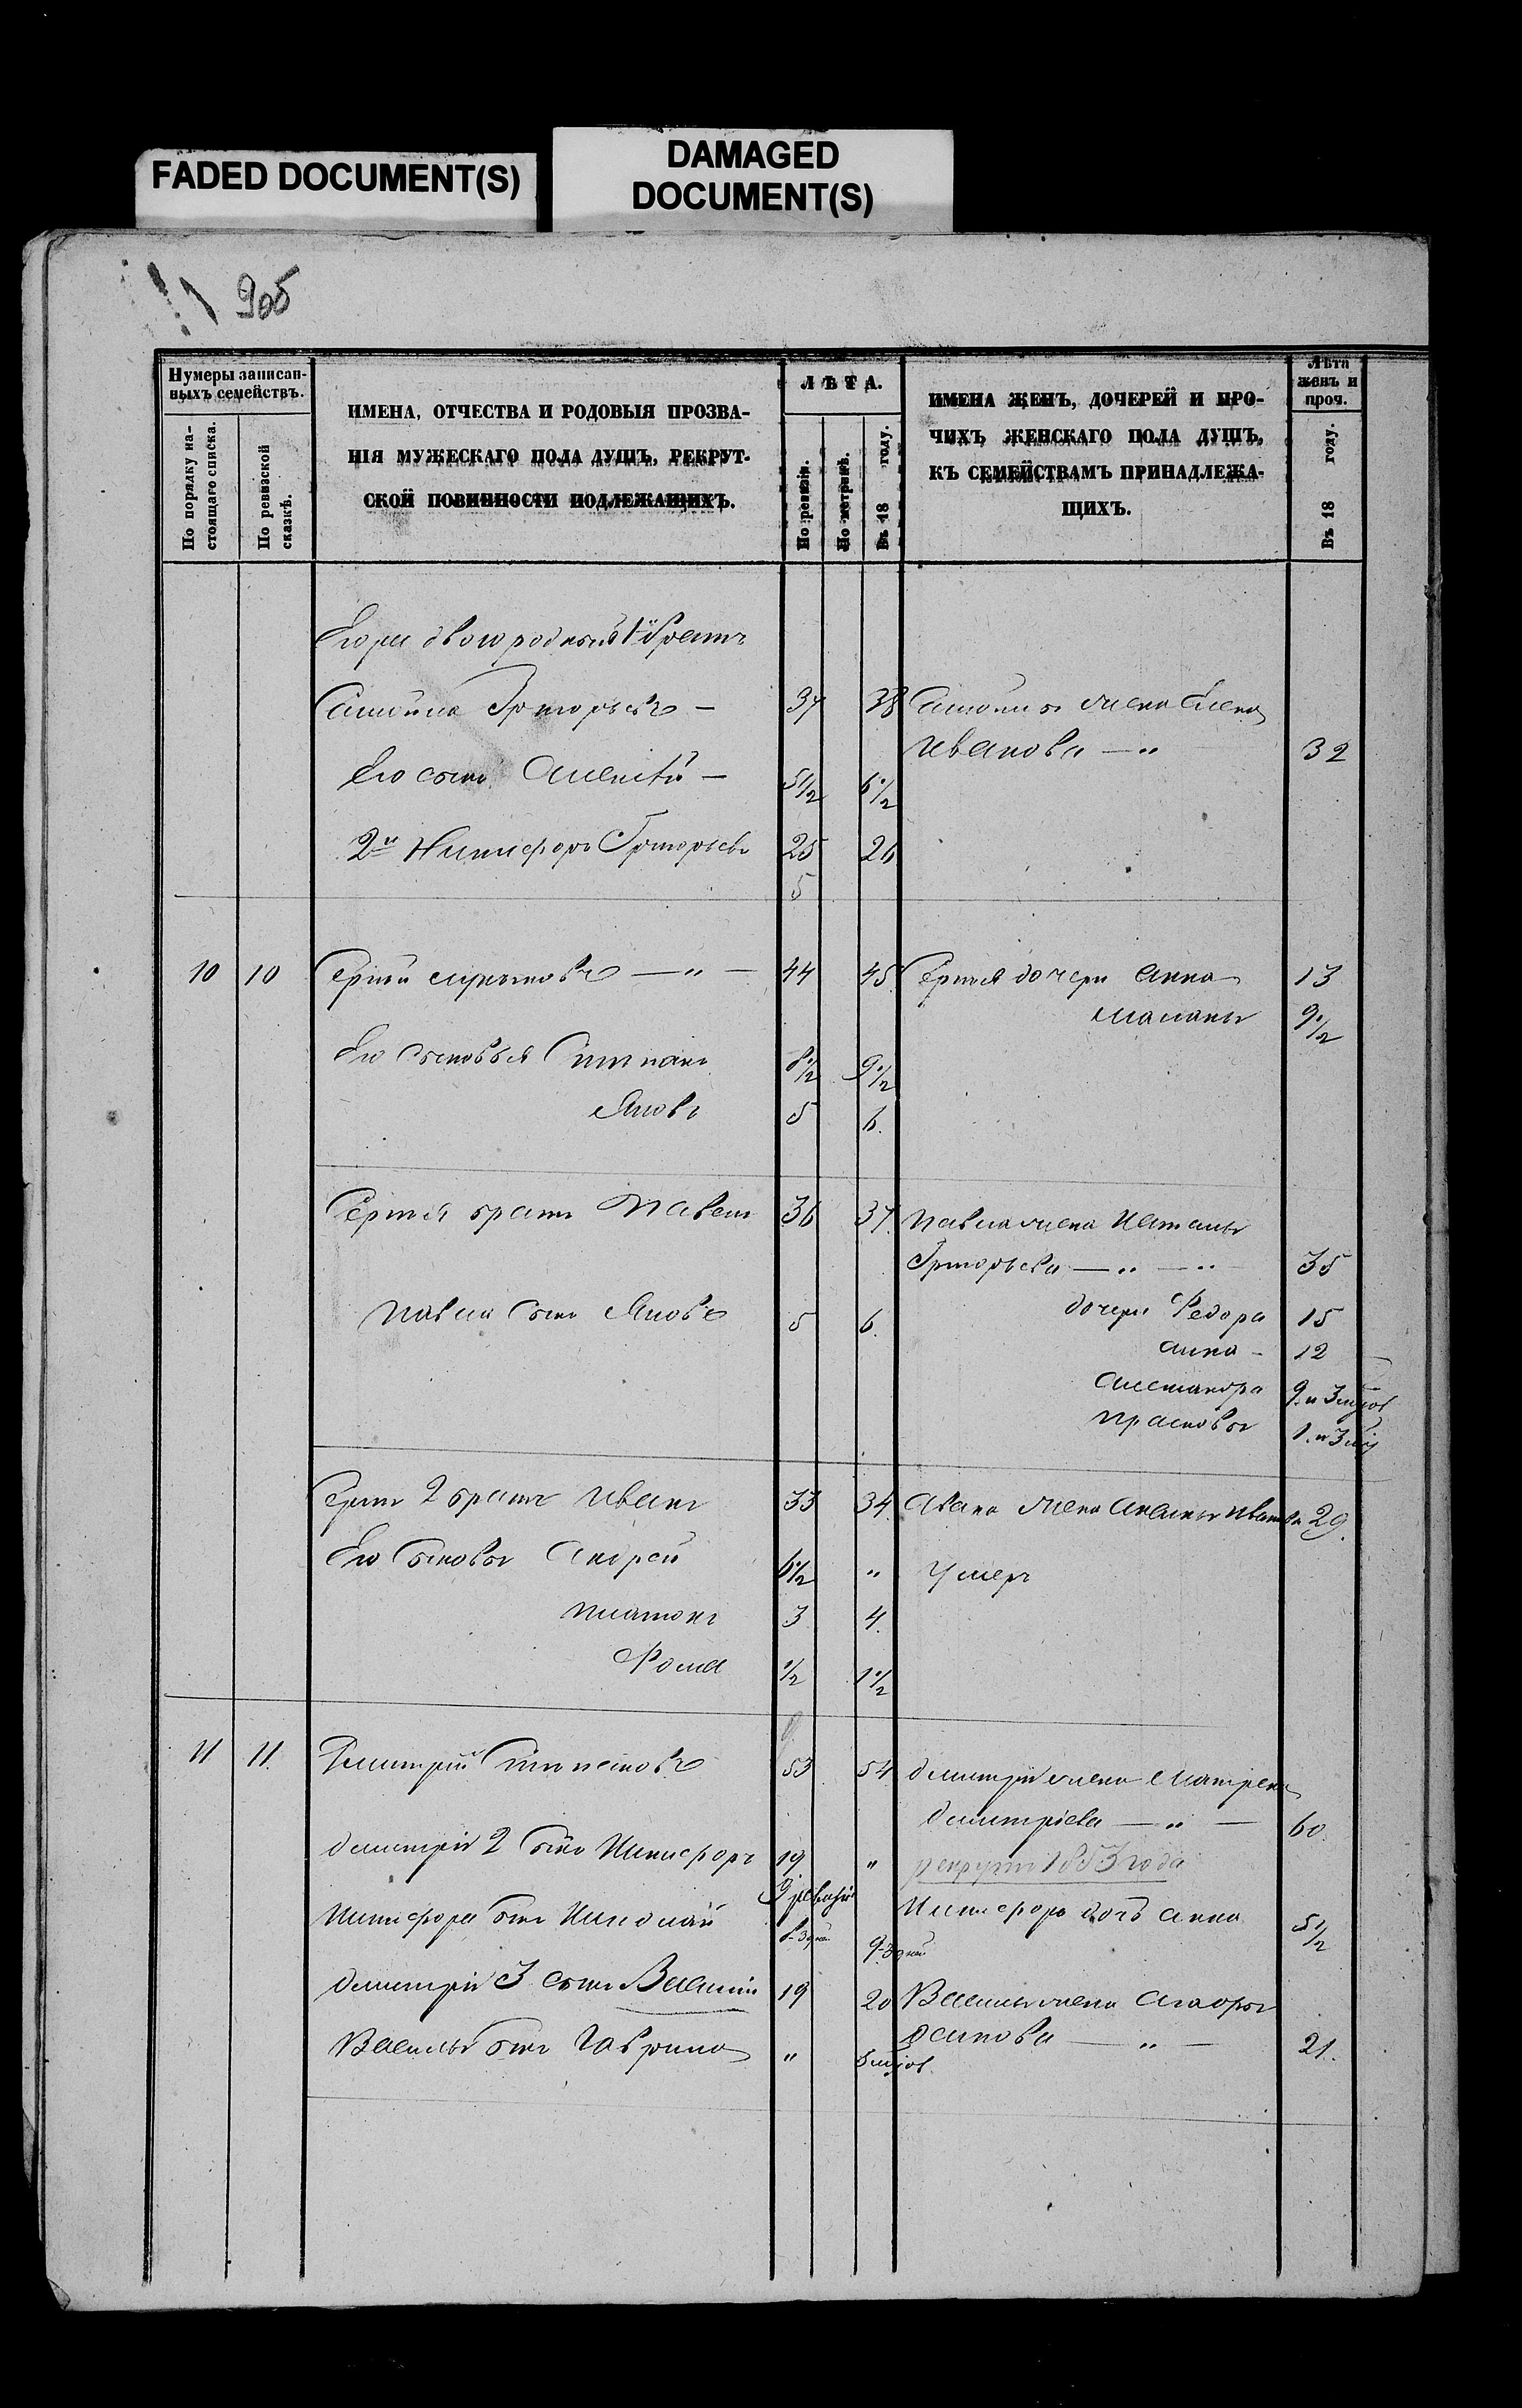 FADED DOCUMENT(S)
DAMAGED
DOCUMENT(S)
905
Нумеры записан-
ныхъ семействъ.
По порядку на-
стоящаго списка.
По ревизской
сказкѣ.
ИМЕНА, ОТЧЕСТВА И РОДОВЫЯ ПРОЗВА-
НІЯ МУЖЕСКАГО ПОЛА ДУШЪ, РЕКРУТ-
СКОЙ ПОВИННОСТИ ПОДЛЕЖАЩИХЪ.
ЛѢТА.
По ревизіи.
По метрикѣ.
Въ 18 году.
ИМЕНА ЖЕНЪ, ДОЧЕРЕЙ И ПРО-
ЧИХЪ ЖЕНСКАГО ПОЛА ДУШЪ,
КЪ СЕМЕЙСТВАМЪ ПРИНАДЛЕЖА-
ЩИХЪ.
Лѣта
женъ и
проч.
Въ 18 году.
Егора двоюродный 1й братъ
Самойла Григорьевъ — 37 38 Самойлы жена Елена
Иванова — " 32
Его сынъ Алексѣй — 5 1/2 6 1/2
2й Никифоръ Григорьевъ 25 26
5
10 10 Сергѣй — " — 44 45 Сергѣя дочери Анна 13
Маланья 9 1/2
Его сыновья Степанъ 8 1/2 9 1/2
Яковъ 5 6.
Сергѣя братъ Павелъ 36 37. Павла жена Наталья
Григорьева — " — " 35
Павла сынъ Яковъ 5 6. дочери Федора 15
Анна - 12
Александра 9. и 3
Прасковья 1. и 3
Сергѣя 2 братъ Иванъ 33 34. Ивана жена Иванова 29.
Его сыновья Андрей 6 1/2 " умеръ
Платонъ 3 4.
Фома 1/2 1 1/2
11 11. Дмитрій 53 54 Дмитрія жена Матрена
Дмитріева — " — 60.
Дмитрія 2 сынъ Никифоръ 19 " рекрутъ 1853 года
9 ревизіи
Никифора сынъ Николай 8 9 Никифора дочь Анна 5 1/2
Дмитрія 3 сынъ Василій 19 20 Василья жена
— " — 21.
Василья сынъ Гаврила "